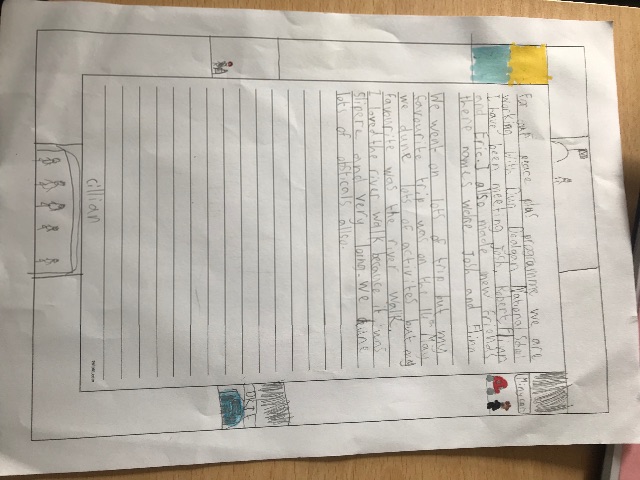 For our peace plus programme we are
working with Dun Dealgan National School
I have been meeting Josh, Robert, Flynn
and Fred I also made new friends
there names were Jack and Finn
We went on lots of trip but my
favourite trip was on the
we done lots of activites but my
favourite was the river walk
I loved the river walk because it was
slipere and very long. We done
lots of obticals alleo.
cillian